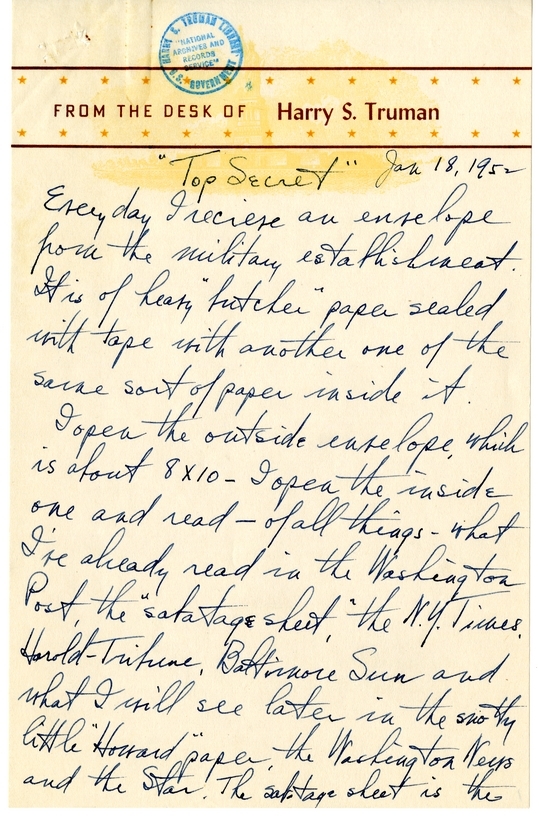 HARRY S. TRUMAN LIBRARY
"NATIONAL
ARCHIVES AND
RECORDS
SERVICE"
U.S. GOVERNMENT
FROM THE DESK OF Harry S. Truman
"Top Secret" Jan 18, 1952
Every day I reciese an envelope
from the military establishment.
It is of heavy "butcher" paper sealed
with tape with another one of the
same sort of paper inside it.
I open the outside envelope, which
is about 8x10 - I open the inside
one and read - of all things - what
I've already read in the Washington
Post, the "sabatage sheet," the N.Y. Times,
Harold-Tribune, Baltimore Sun and
what I will see later in the snotty
little "Howard" paper, the Washington News
and the Star. The sabatage sheet is the